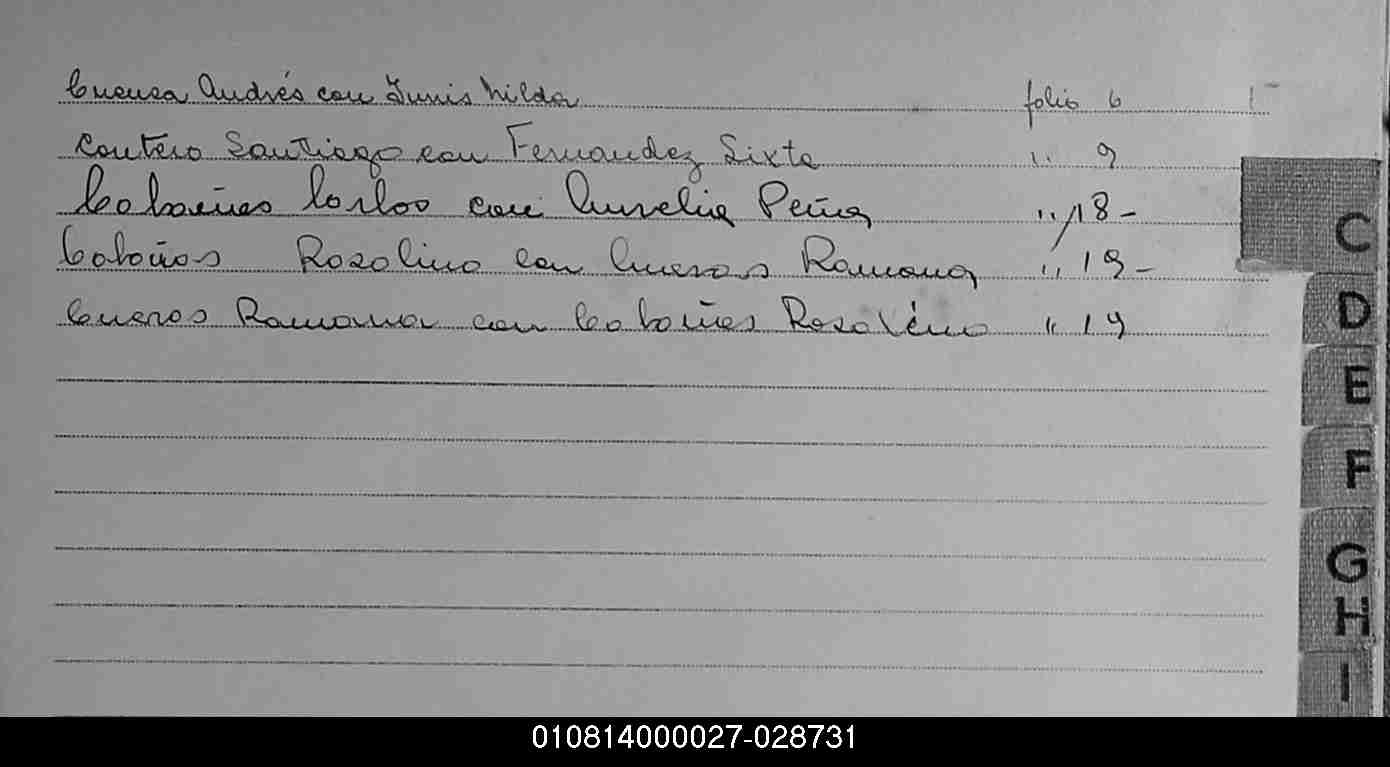 Cuenca Andrés con Funis Nilda folio 6
Contero Santiago con Fernandez Sixta " 9
Cobaños Carlos con Aurelia Peña " 18-
C
Cobaños Rosolino con Cueros Ramona " 19-
D
Cueros Ramona con Cobañes Rosolino " 19
E
F
G
H
I
010814000027-028731